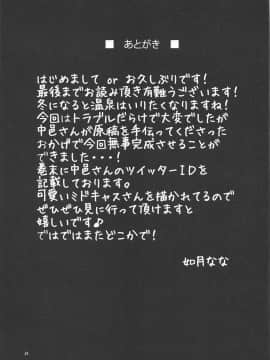 ■ あとがき ■
はじめまして or お久しぶりです!
最後までお読み頂き有難うございます!
冬になると温泉はいりたくなりますね!
今回はトラブルだらけで大変でしたが
中邑さんが原稿を手伝ってくださった
おかげで今回無事完成させることが
できました・・・!
巻末に中邑さんのツイッターIDを
記載しております。
可愛いミドキャスさんを描かれてるので
ぜひぜひ見に行って頂けますと
嬉しいです♪
ではではまたどこかで!
如月なな